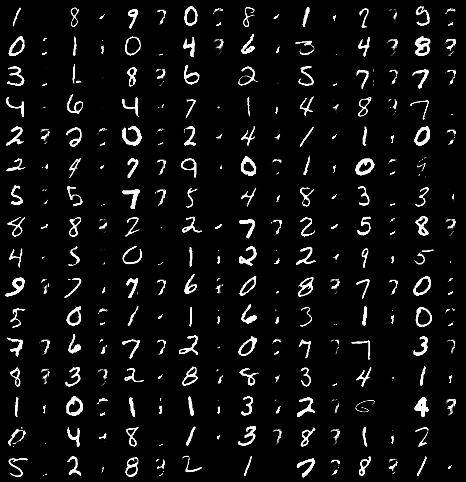 1 8 9 0 8 1 7 9
0 1 0 4 6 3 4 8
3 1 8 6 2 5 7 7
4 6 4 7 1 4 8 7
2 2 0 2 4 1 1 0
2 4 7 9 0 1 0
5 5 7 5 4 8 3 3
8 8 2 2 7 2 5 8
4 5 0 1 2 2 9 5
9 7 7 6 0 8 7 0
5 0 1 1 6 3 1 0
7 6 7 2 0 7 7 3
8 3 2 8 8 3 4 1
1 0 1 1 3 2 4
0 4 8 1 3 8 1 2
5 2 8 2 1 7 8 1